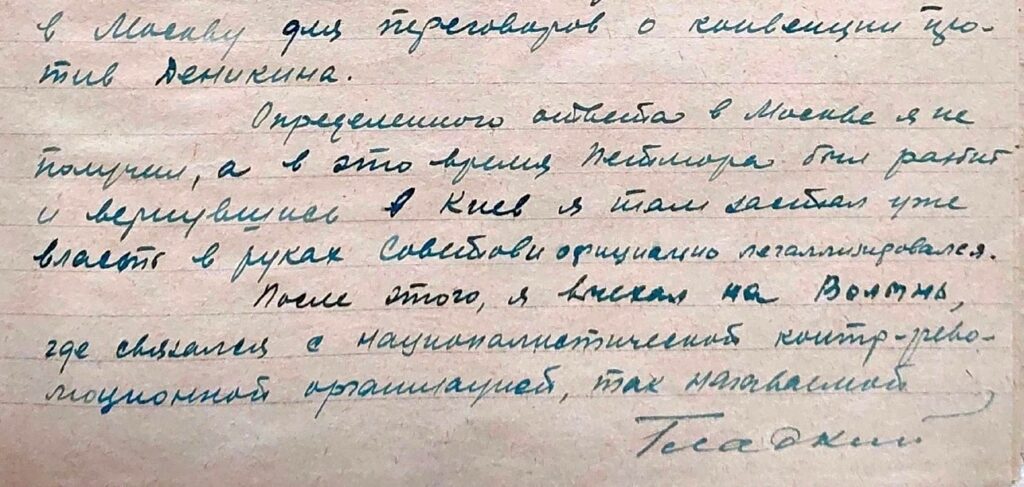 в Москву для переговоров о конвенции про-
тив Деникина.
Определенного ответа в Москве я не
получил, а в это время Петлюра был разбит
и вернувшись в Киев я там застал уже
власть в руках Советов и официально легаллизировался.
После этого, я выехал на Волынь,
где связался с националистической контр-рево-
люционной организацией, так называемой
Гладкий